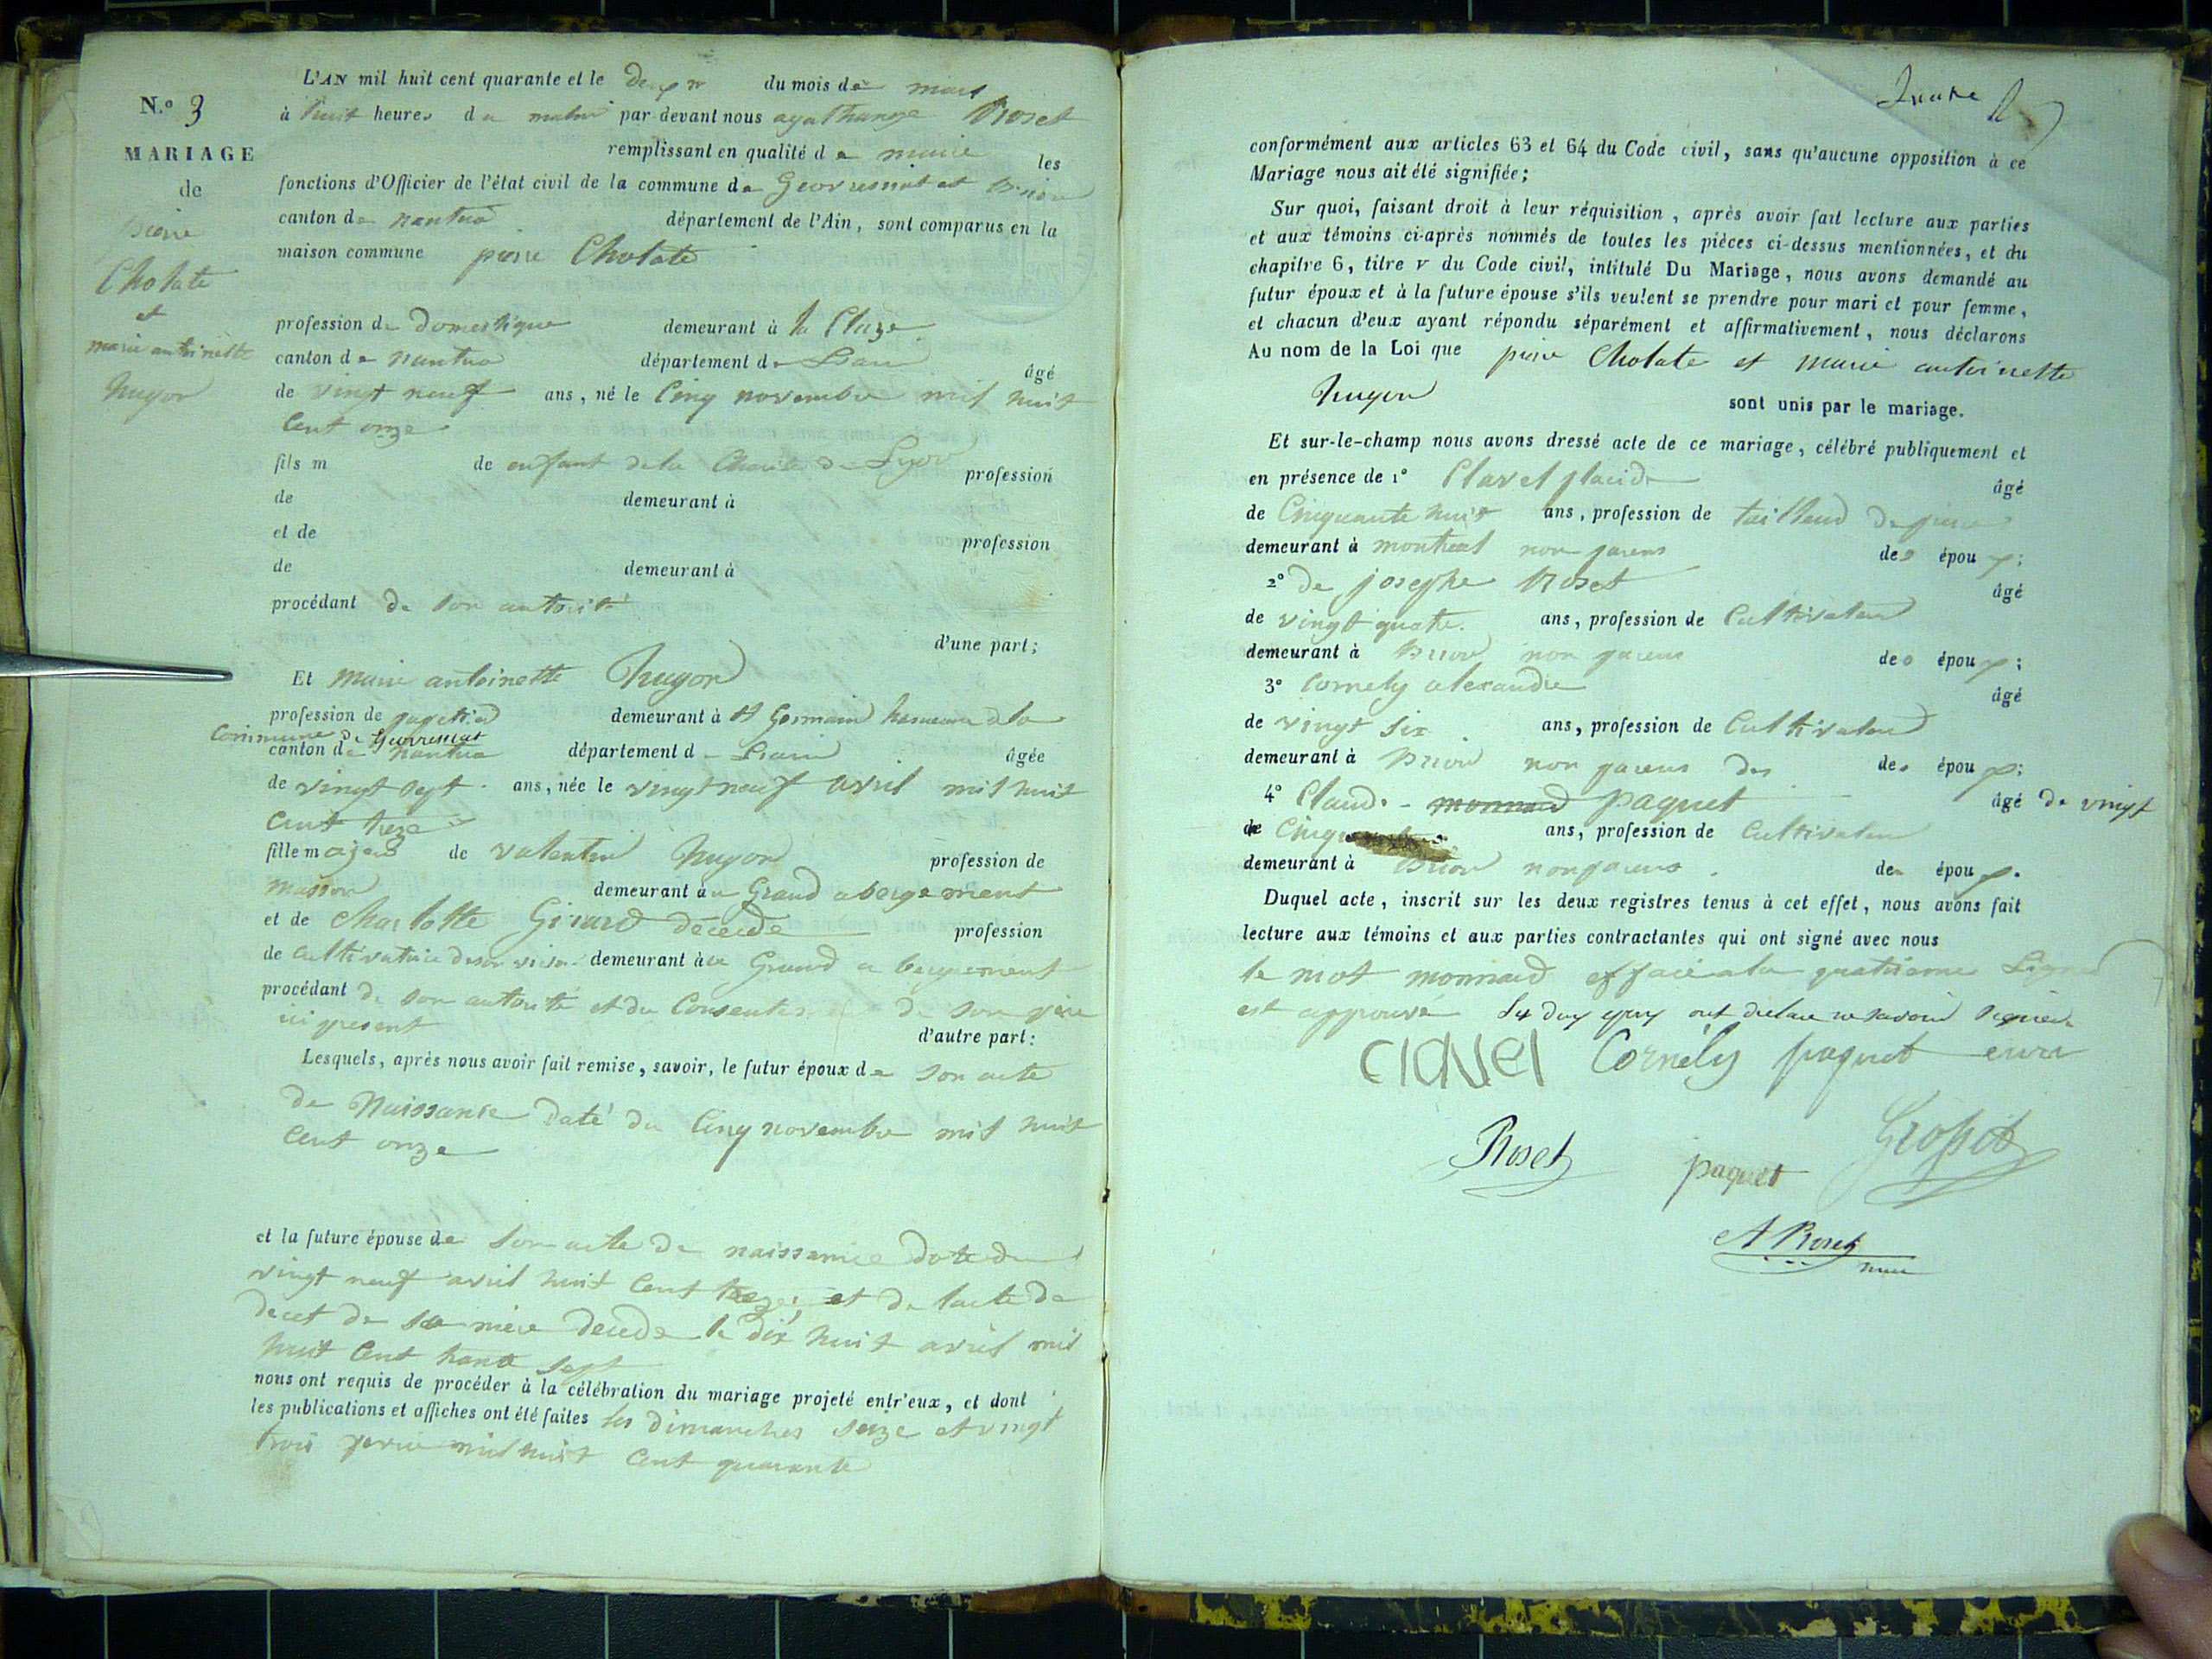 N.º 3
MARIAGE
de
pierre
Cholate
et
marie antoinette
hugon
L'AN mil huit cent quarante et le deux du mois de mars
à huit heures du matin par devant nous agathange Roset
remplissant en qualité de maire les
fonctions d'Officier de l'état civil de la commune de Geovressiat et Brion
canton de nantua département de l'Ain, sont comparus en la
maison commune pierre Cholate
profession de Domestique demeurant à la Cluze
canton de nantua département de Lain âgé
de vingt neuf ans, né le Cinq novembre mil huit
Cent onze
fils m de enfant dela Charité de Lyon profession
de demeurant à
et de profession
de demeurant à
procédant de son autorité
d'une part;
Et marie antoinette hugon
profession de demeurant à St Germain hameau dela
Commune de Geovressiat
canton de nantua département de Lain âgée
de vingt sept ans, née le vingt neuf avril mil huit
Cent treze
fille majeur de valentin hugon profession de
masson demeurant au Grand abergement
et de Charlotte Girard décédé profession
de cultivatrice demeurant au Grand abergement
procédant de son autorité et du Consentement de son père
ici present d'autre part:
Lesquels, après nous avoir fait remise, savoir, le futur époux de son acte
de Naissance daté du Cinq novembre mil huit
Cent onze
et la future épouse de son acte de naissance daté du
vingt neuf avril huit Cent treze, et de lacte de
decet de sa mère décédé le dix huit avril mil
huit Cent trante sept
nous ont requis de procéder à la célébration du mariage projeté entr'eux, et dont
les publications et affiches ont été faites les dimanches seize et vingt
trois mil huit Cent quarante
conformément aux articles 63 et 64 du Code civil, sans qu'aucune opposition à ce
Mariage nous ait été signifiée;
Sur quoi, faisant droit à leur réquisition, après avoir fait lecture aux parties
et aux témoins ci-après nommés de toutes les pièces ci-dessus mentionnées, et du
chapitre 6, titre v du Code civil, intitulé Du Mariage, nous avons demandé au
futur époux et à la future épouse s'ils veulent se prendre pour mari et pour femme,
et chacun d'eux ayant répondu séparément et affirmativement, nous déclarons
Au nom de la Loi que pierre Cholate et marie antoinette
hugon sont unis par le mariage.
Et sur-le-champ nous avons dressé acte de ce mariage, célébré publiquement et
en présence de 1º Clavel placide âgé
de Cinquante huit ans, profession de tailleur de pierre
demeurant à montreal non parens des époux;
2º de josephe Roset âgé
de vingt quatre ans, profession de Cultivateur
demeurant à Brion non parens des époux;
3º Cornely alexandre âgé
de vingt six ans, profession de Cultivateur
demeurant à Brion non parens des des époux;
4º Claude monnard paquet âgé de vingt
de Cinq ans, profession de Cultivateur
demeurant à Brion non parens des époux.
Duquel acte, inscrit sur les deux registres tenus à cet effet, nous avons fait
lecture aux témoins et aux parties contractantes qui ont signé avec nous
le mot monnard effacé ala quatrieme Ligne
est approuvé ont declaré ne savoir signer
Clavel Cornély paquet
Roset paquet
A Roset
maire